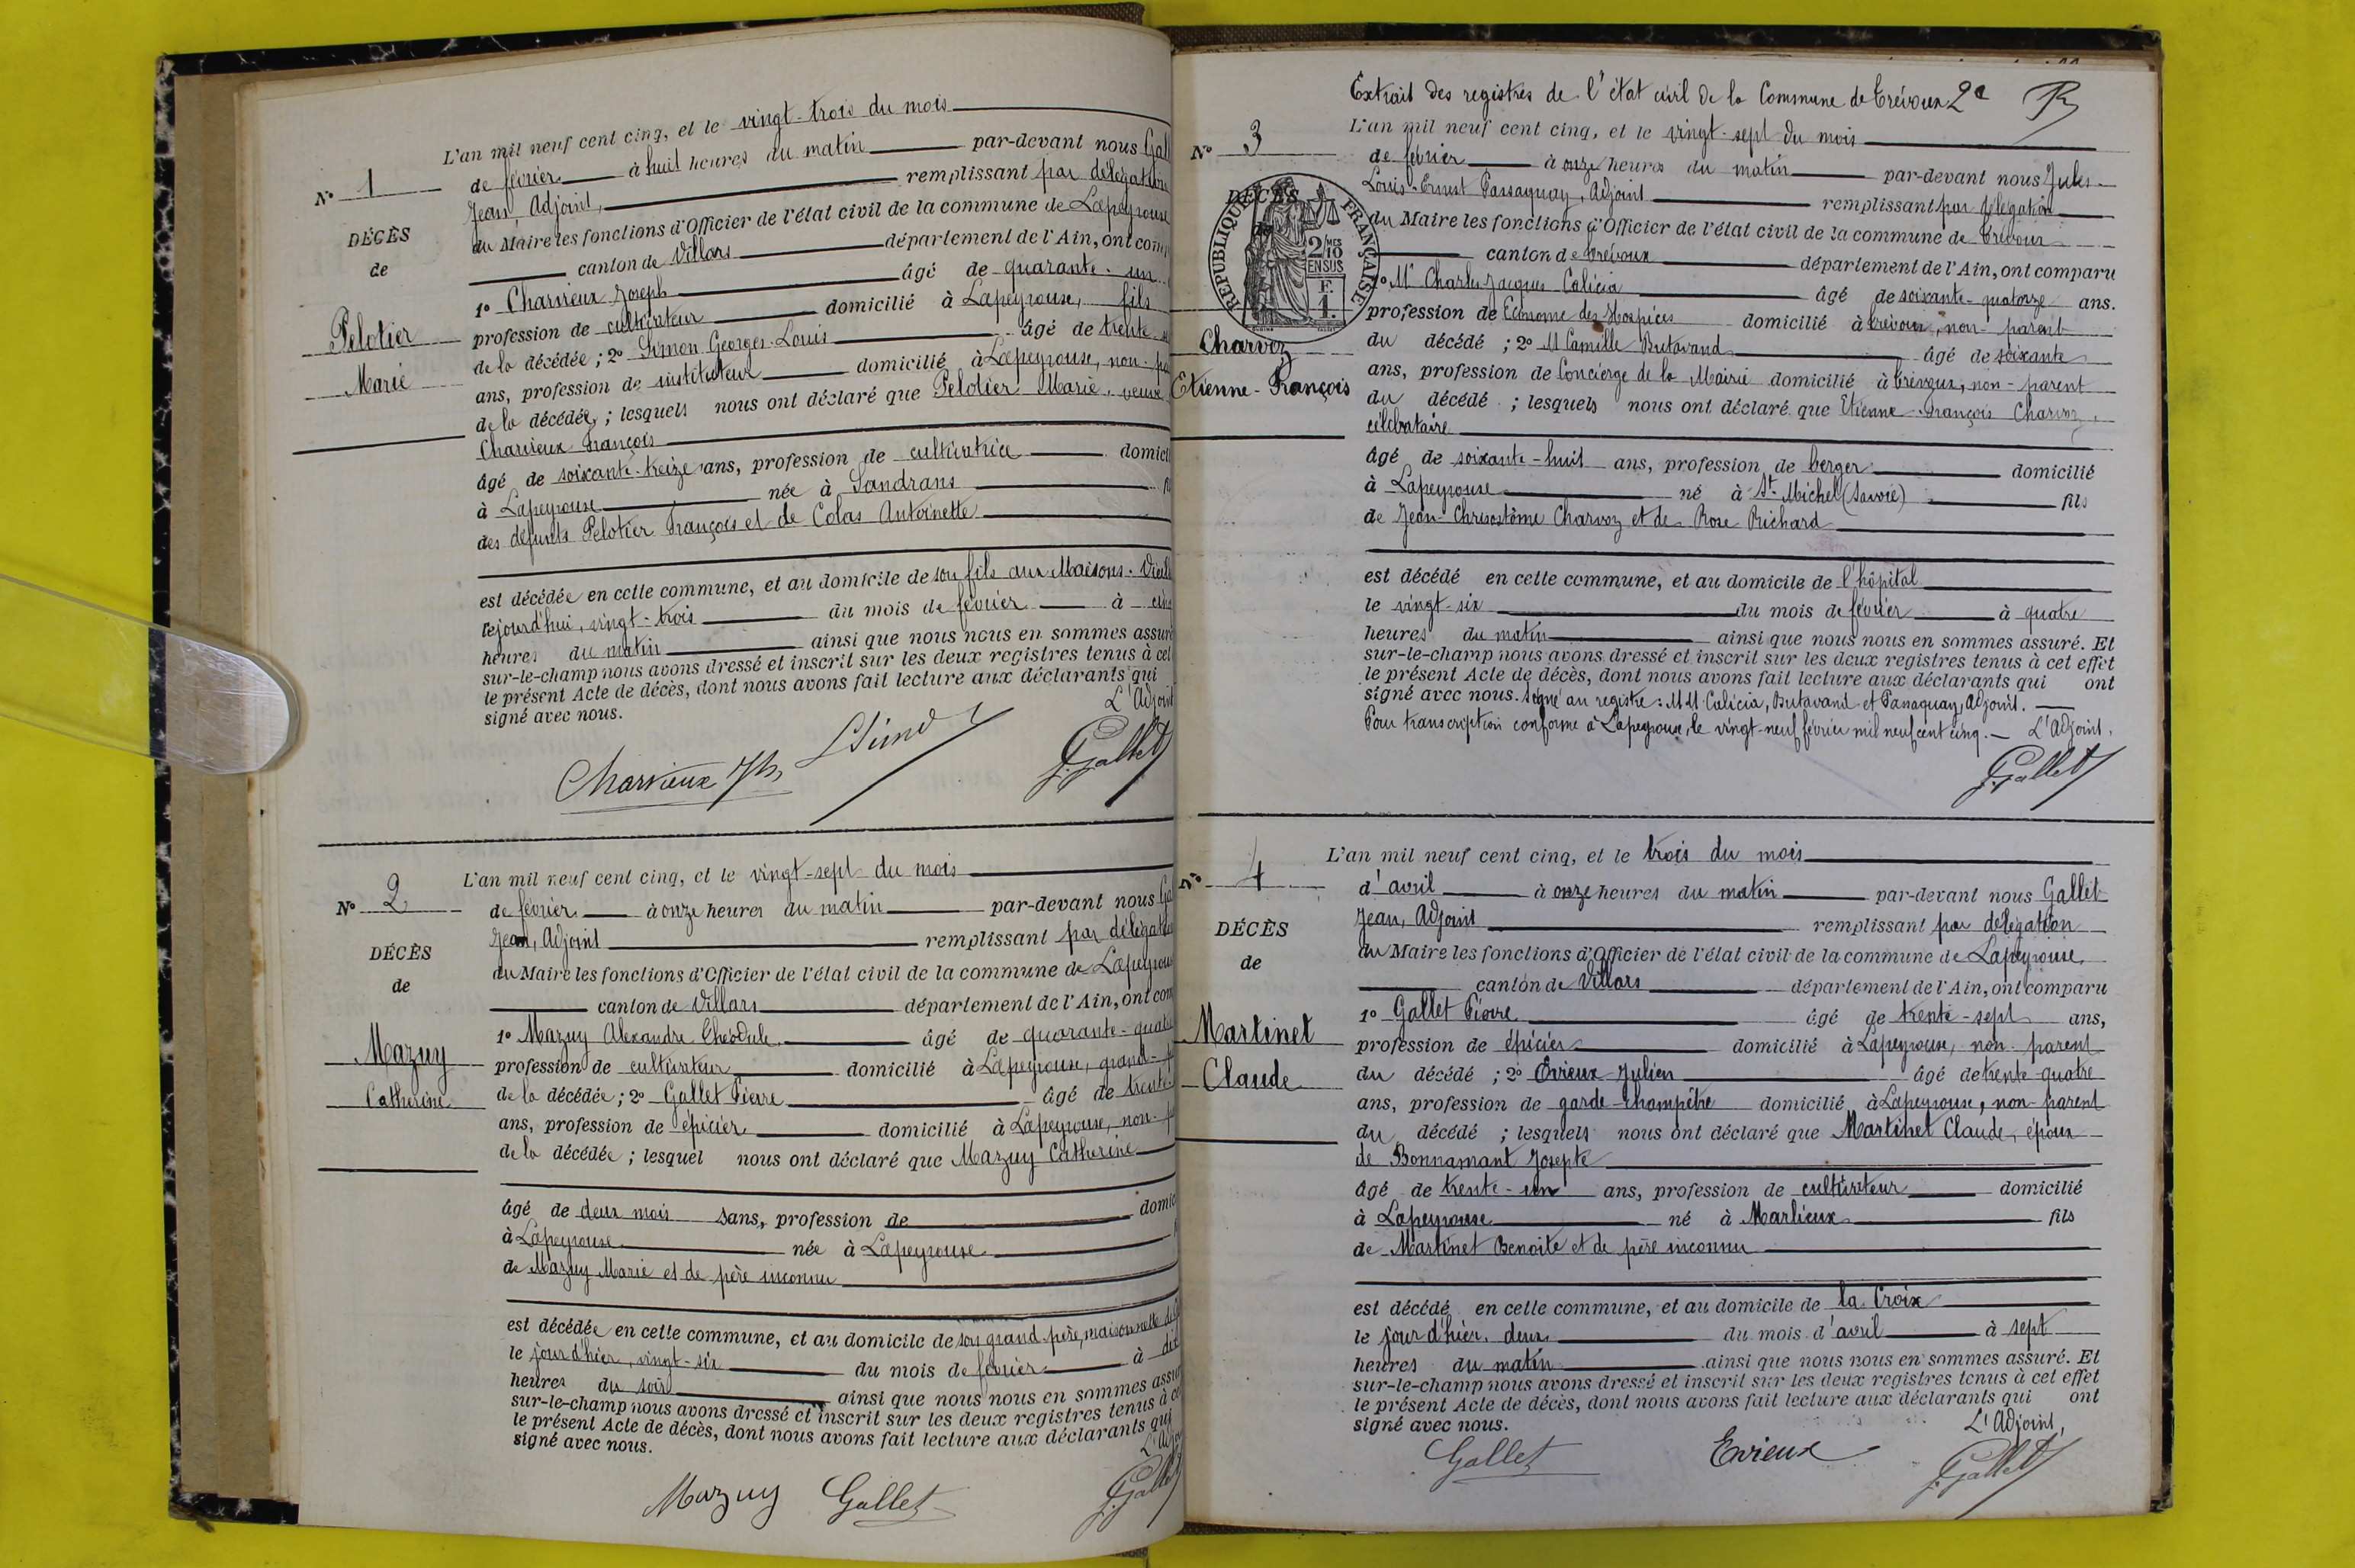 L'an mil neuf cent cinq, et le vingt-trois du mois
N° 1
de février à huit heures du matin par-devant nous Gall
Jean, Adjoint, remplissant par délégation
DÉCÈS
du Maire les fonctions d'Officier de l'état civil de la commune de Lapeyrouse
de
canton de Villars département de l'Ain, ont comp
1° Charvieux Joseph âgé de quarante-un
Pelotier
profession de cultivateur domicilié à Lapeyrouse, fils
de la décédée ; 2° Simon Georges-Louis âgé de trente
Marie
ans, profession de instituteur domicilié à Lapeyrouse, non-pa
de la décédée ; lesquels nous ont déclaré que Pelotier Marie, veuve
Charvieux François
âgé de soixante-treize ans, profession de cultivatrice domici
à Lapeyrouse née à Sandrans
des défunts Pelotier François et de Colas Antoinette
est décédée en cette commune, et au domicile de son fils aux Maisons-Vieil
cejourd'hui, vingt-trois du mois de février à cinq
heures du matin ainsi que nous nous en sommes assuré
sur-le-champ nous avons dressé et inscrit sur les deux registres tenus à cet
le présent Acte de décès, dont nous avons fait lecture aux déclarants qui
signé avec nous. L'Adjoint
Charvieux Jh LSimon J.Gallet
L'an mil neuf cent cinq, et le vingt-sept du mois
N° 2
de février à onze heures du matin par-devant nous Ga
Jean, Adjoint remplissant par délégation
DÉCÈS
du Maire les fonctions d'Officier de l'état civil de la commune de Lapeyrouse
de
canton de Villars département de l'Ain, ont com
1° Mazuy Alexandre Théodule âgé de quarante-quatre
Mazuy
profession de cultivateur domicilié à Lapeyrouse, grand-p
Catherine
de la décédée ; 2° Gallet Pierre âgé de trente
ans, profession de épicier domicilié à Lapeyrouse, non-p
de la décédée ; lesquel nous ont déclaré que Mazuy Catherine
âgé de deux mois sans, profession de domic
à Lapeyrouse née à Lapeyrouse
de Mazuy Marie et de père inconnu
est décédée en cette commune, et au domicile de son grand-père, maisonnette
le jour d'hier, vingt-six du mois de février à dix
heures du soir ainsi que nous nous en sommes assur
sur-le-champ nous avons dressé et inscrit sur les deux registres tenus à ce
le présent Acte de décès, dont nous avons fait lecture aux déclarants qui
signé avec nous. L'Adjo
Mazuy Gallet J.Gallet
Extrait des registres de l'état civil de la Commune de Trévoux 2e
L'an mil neuf cent cinq, et le vingt-sept du mois
N° 3
de février à onze heures du matin par-devant nous Jules-
Louis-Ernest Passaquay, Adjoint remplissant par délégation
DÉCÈS
du Maire les fonctions d'Officier de l'état civil de la commune de Trévoux
de
RÉPUBLIQUE FRANÇAISE
2/10 MES
EN SUS
F.
1.
canton de Trévoux département de l'Ain, ont comparu
1° Mr Charles Jacques Calicia âgé de soixante-quatorze ans.
profession de Econome des Hospices domicilié à Trévoux, non-parent
Charvoz
du décédé ; 2° M Camille Butavand âgé de soixante
Etienne-François
ans, profession de Concierge de la Mairie domicilié à Trévoux, non-parent
du décédé ; lesquels nous ont déclaré que Etienne-François Charvoz,
célibataire
âgé de soixante-huit ans, profession de berger domicilié
à Lapeyrouse né à St Michel (Savoie) fils
de Jean-Chrisostôme Charvoz et de Rose Richard
est décédé en cette commune, et au domicile de l'hôpital
le vingt-six du mois de février à quatre
heures du matin ainsi que nous nous en sommes assuré. Et
sur-le-champ nous avons dressé et inscrit sur les deux registres tenus à cet effet
le présent Acte de décès, dont nous avons fait lecture aux déclarants qui ont
signé avec nous. Signé au registre : MM Calicia, Butavand et Passaquay, Adjoint.
Pour transcription conforme à Lapeyrouse, le vingt-neuf février mil neuf cent cinq. — L'Adjoint,
J.Gallet
L'an mil neuf cent cinq, et le trois du mois
N° 4
d'avril à onze heures du matin par-devant nous Gallet
Jean, Adjoint remplissant par délégation
DÉCÈS
du Maire les fonctions d'Officier de l'état civil de la commune de Lapeyrouse,
de
canton de Villars département de l'Ain, ont comparu
1° Gallet Pierre âgé de trente-sept ans,
Martinet
profession de épicier domicilié à Lapeyrouse, non-parent
Claude
du décédé ; 2° Evieux Julien âgé de trente-quatre
ans, profession de garde-champêtre domicilié à Lapeyrouse, non-parent
du décédé ; lesquels nous ont déclaré que Martinet Claude, époux
de Bonnamant Josepte
âgé de trente-un ans, profession de cultivateur domicilié
à Lapeyrouse né à Marlieux fils
de Martinet Benoite et de père inconnu
est décédé en cette commune, et au domicile de la Croix
le jour d'hier, deux du mois d'avril à sept
heures du matin ainsi que nous nous en sommes assuré. Et
sur-le-champ nous avons dressé et inscrit sur les deux registres tenus à cet effet
le présent Acte de décès, dont nous avons fait lecture aux déclarants qui ont
signé avec nous. L'Adjoint,
Gallet Evieux J.Gallet